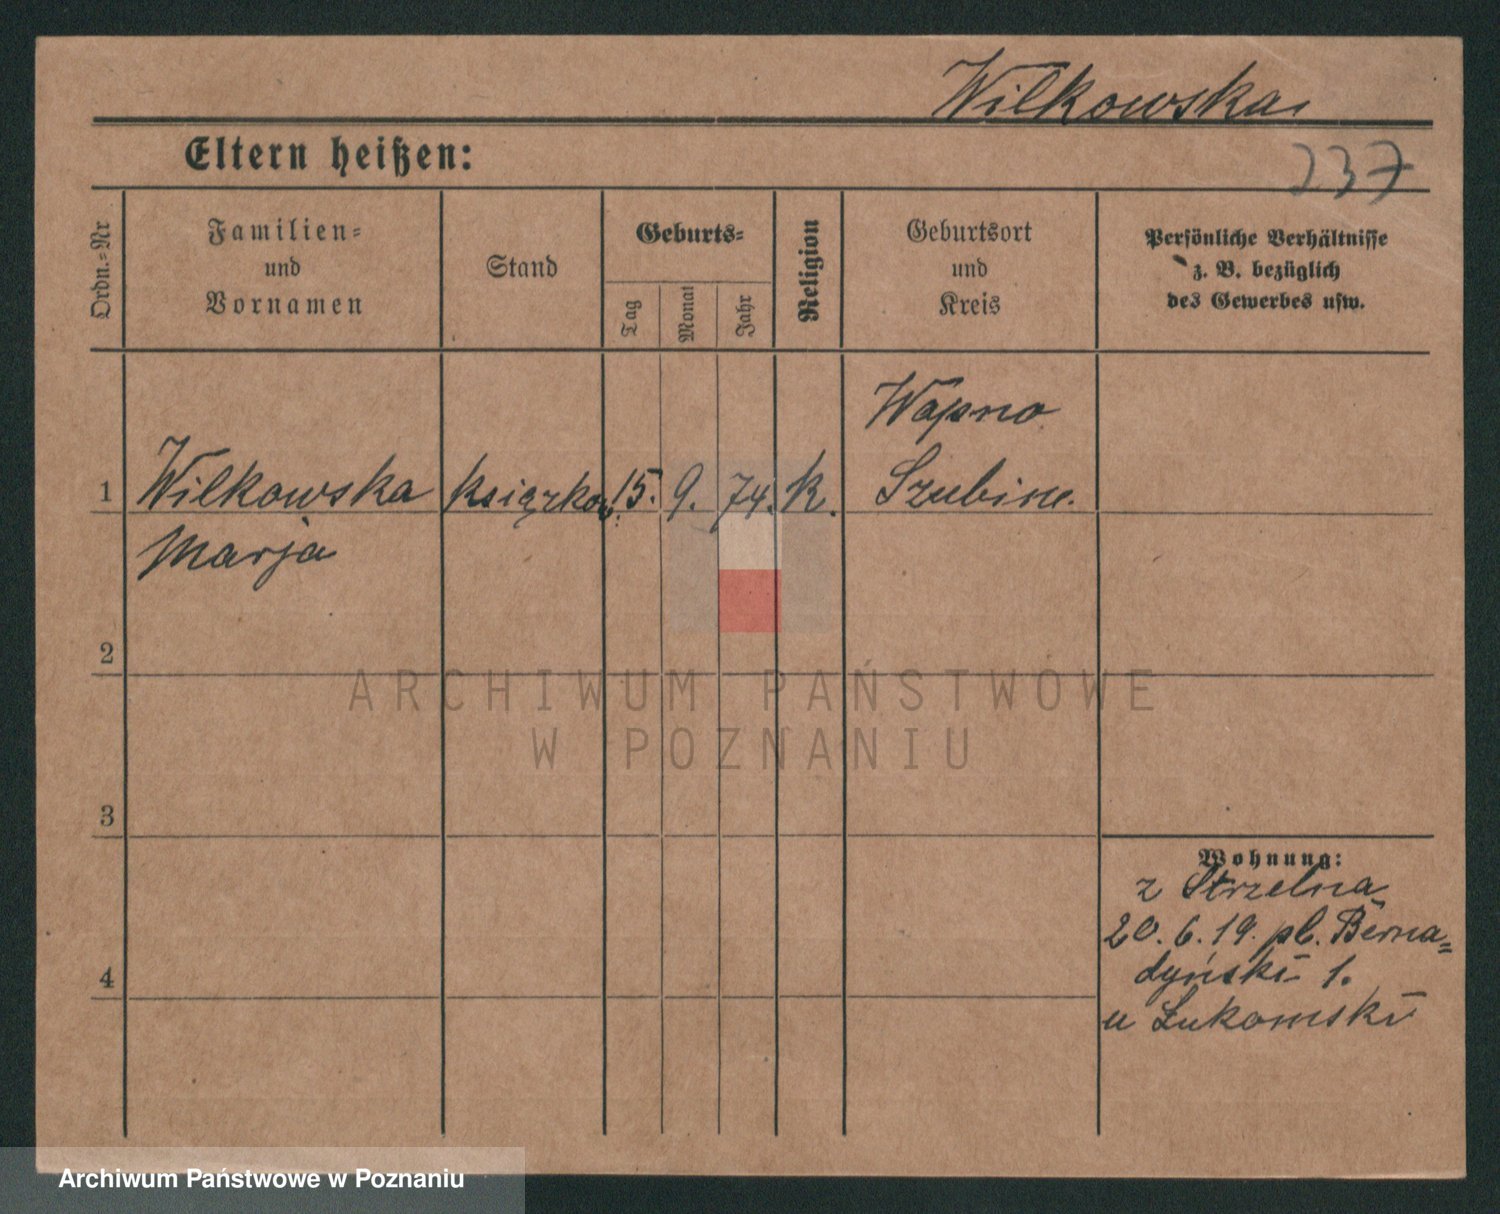 Wilkowska
Eltern heißen:
237
Ordn.-Nr
Familien-
und
Vornamen
Stand
Geburts-
Tag
Monat
Jahr
Religion
Geburtsort
und
Kreis
Persönliche Verhältnisse
z. B. bezüglich
des Gewerbes usw.
Wapno
1 Wilkowska książkow. 15. 9. 74. k. Szubin.
Marja
2
ARCHIWUM PAŃSTWOWE
W POZNANIU
3
Wohnung:
z Strzelna
20. 6. 19. pl. Berna=
dyński 1.
u Łukomski
4
Archiwum Państwowe w Poznaniu